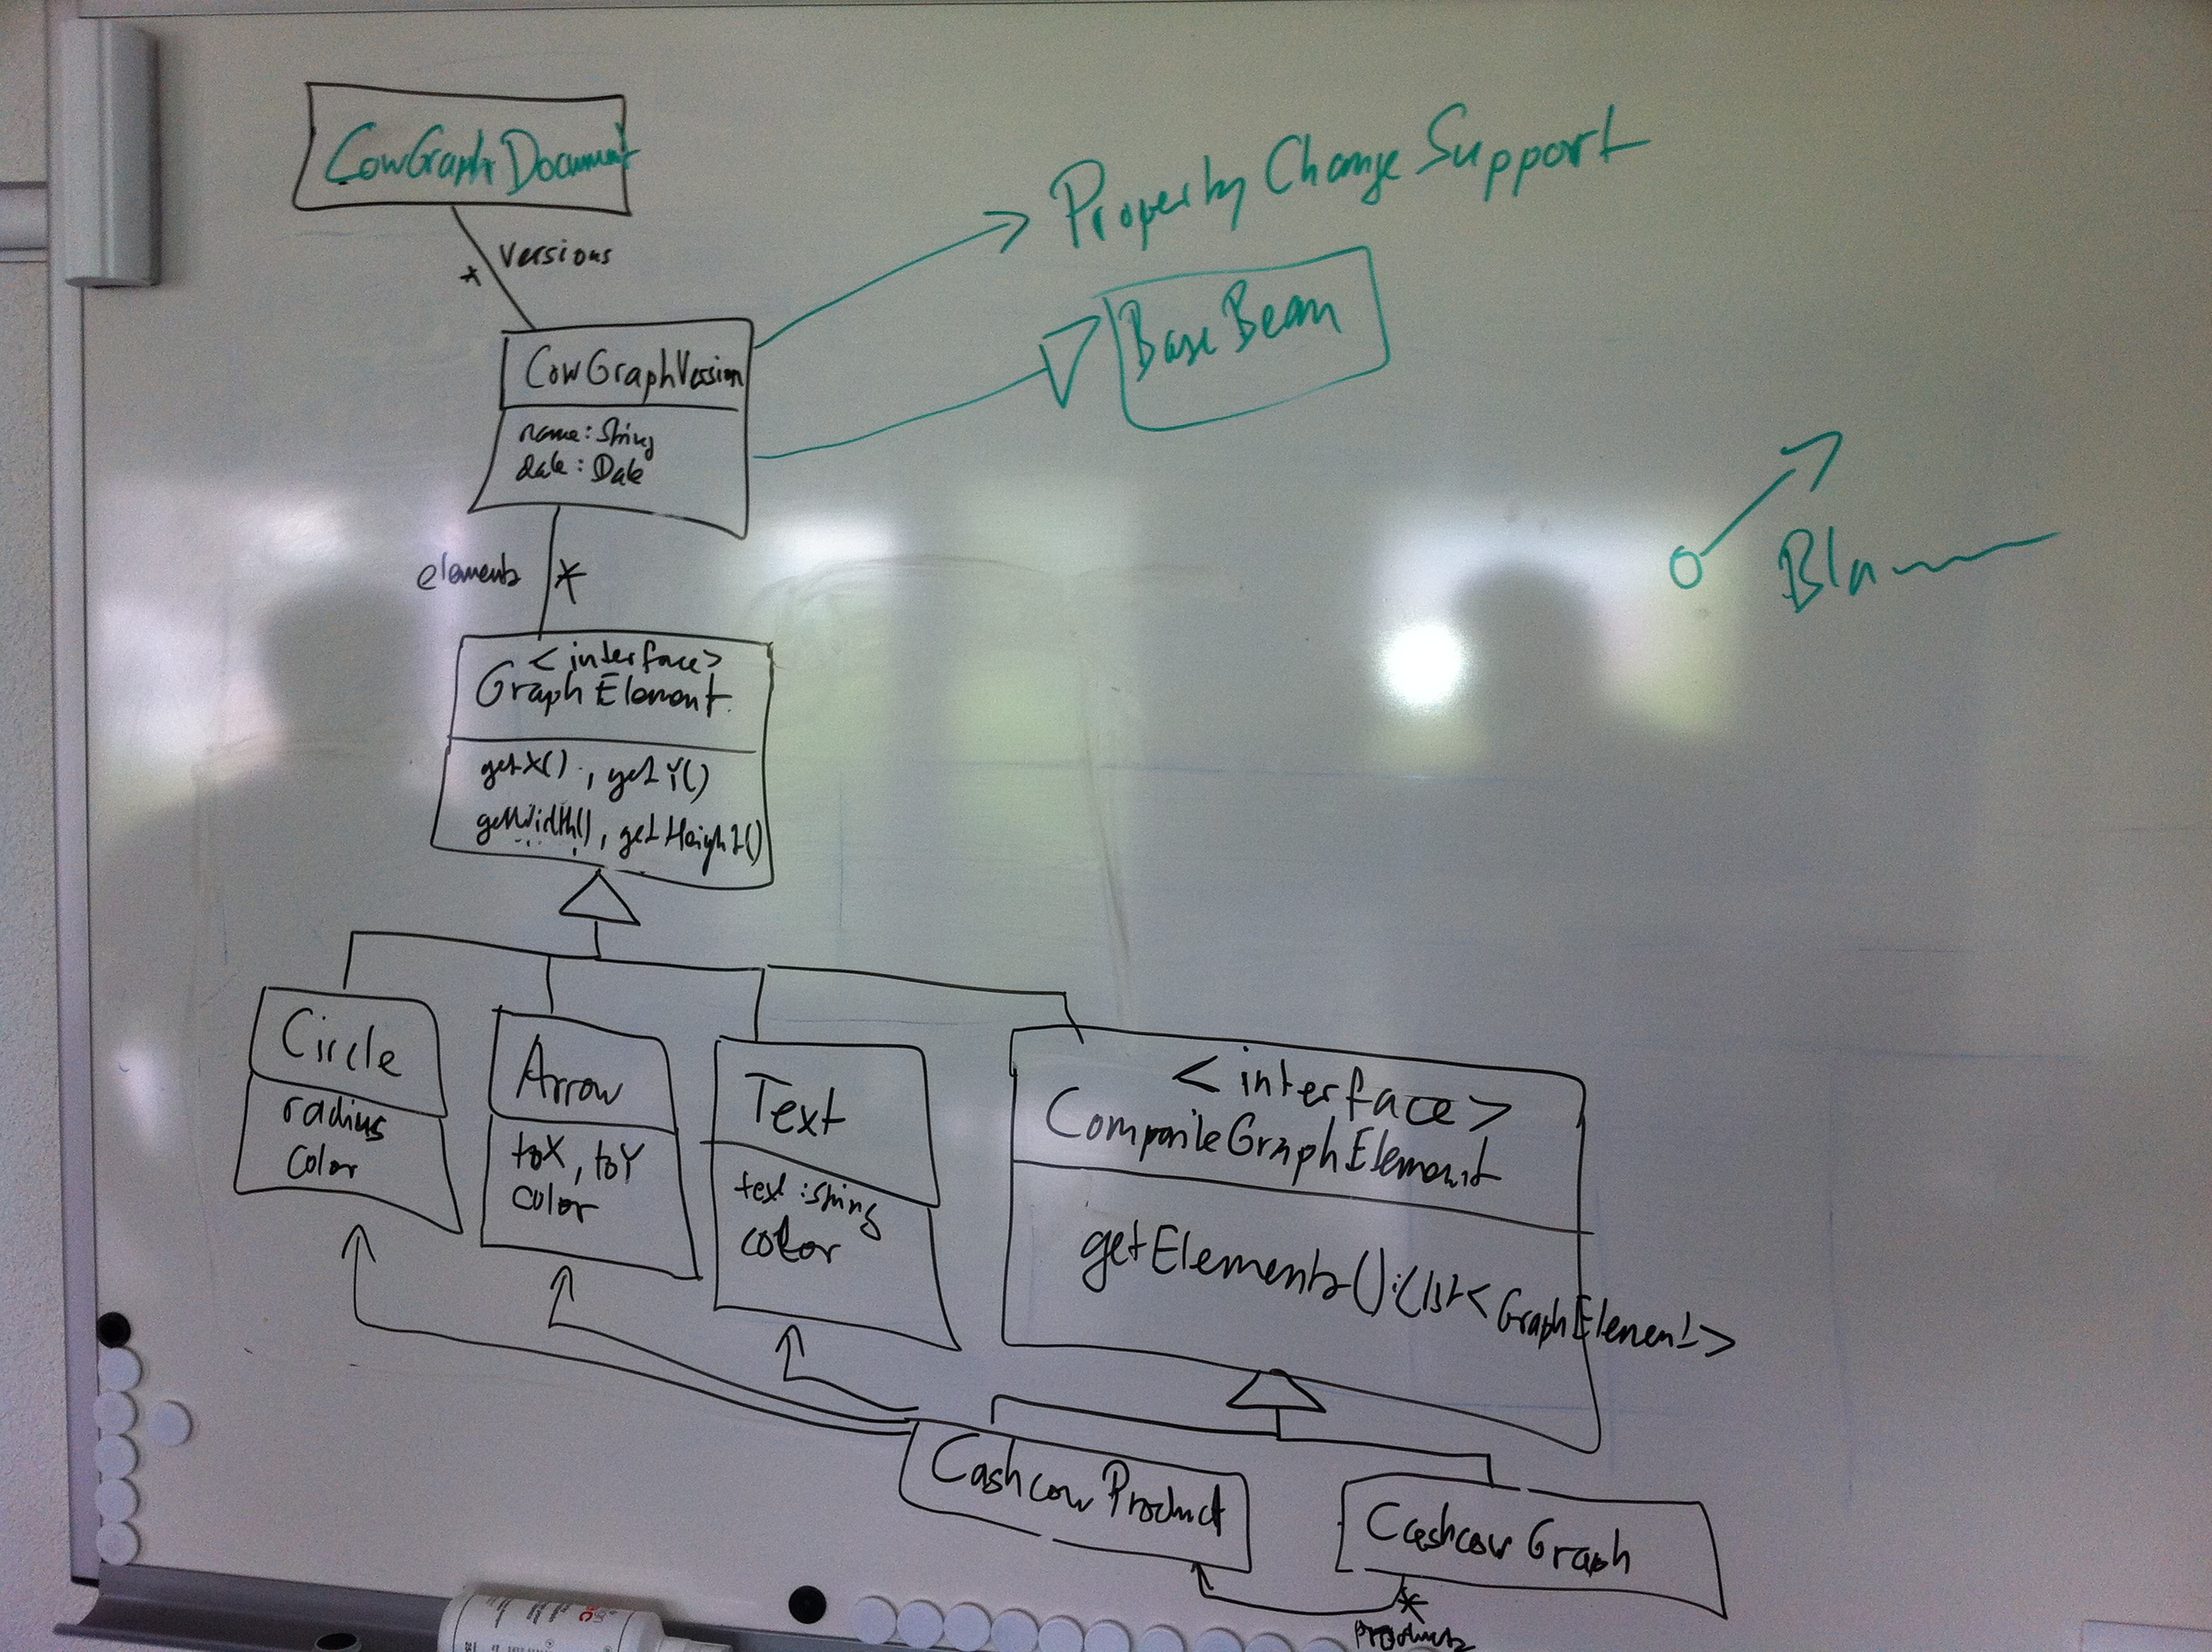 CowGraphDocument
* Versions
Property Change Support
BaseBean
CowGraphVersion
name: String
date: Date
Bla
elements *
<interface>
GraphElement
getX(), getY()
getWidth(), getHeight()
Circle
radius
Color
Arrow
toX, toY
color
Text
text: String
color
<interface>
CompositeGraphElement
getElements(): List<GraphElement>
Cashcow Product
Cashcow Graph
*
products